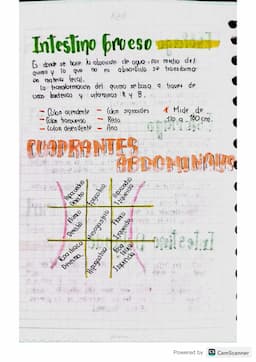 Intestino Grueso
Es donde se hace la absorción de agua por medio del
quimo y lo que no es absorbido se transforma
en materia fecal.
La transformación del quimo se basa a traves de
unas bacterias y vitaminas K y B.
- Colon ascendente - Colon sigmoides * Mide de
- Colon transverso - Recto 120 a 180 cm.
- Colon descendente - Ano
CUADRANTES
ABDOMINALES
Hipocondrio Derecho Epigastrio Hipocondrio Izquierdo
Flanco Derecho Mesogastrio Flanco Izquierdo
Fosa iliaca Derecha Hipogastrio Fosa iliaca Izquierda
Powered by CS CamScanner